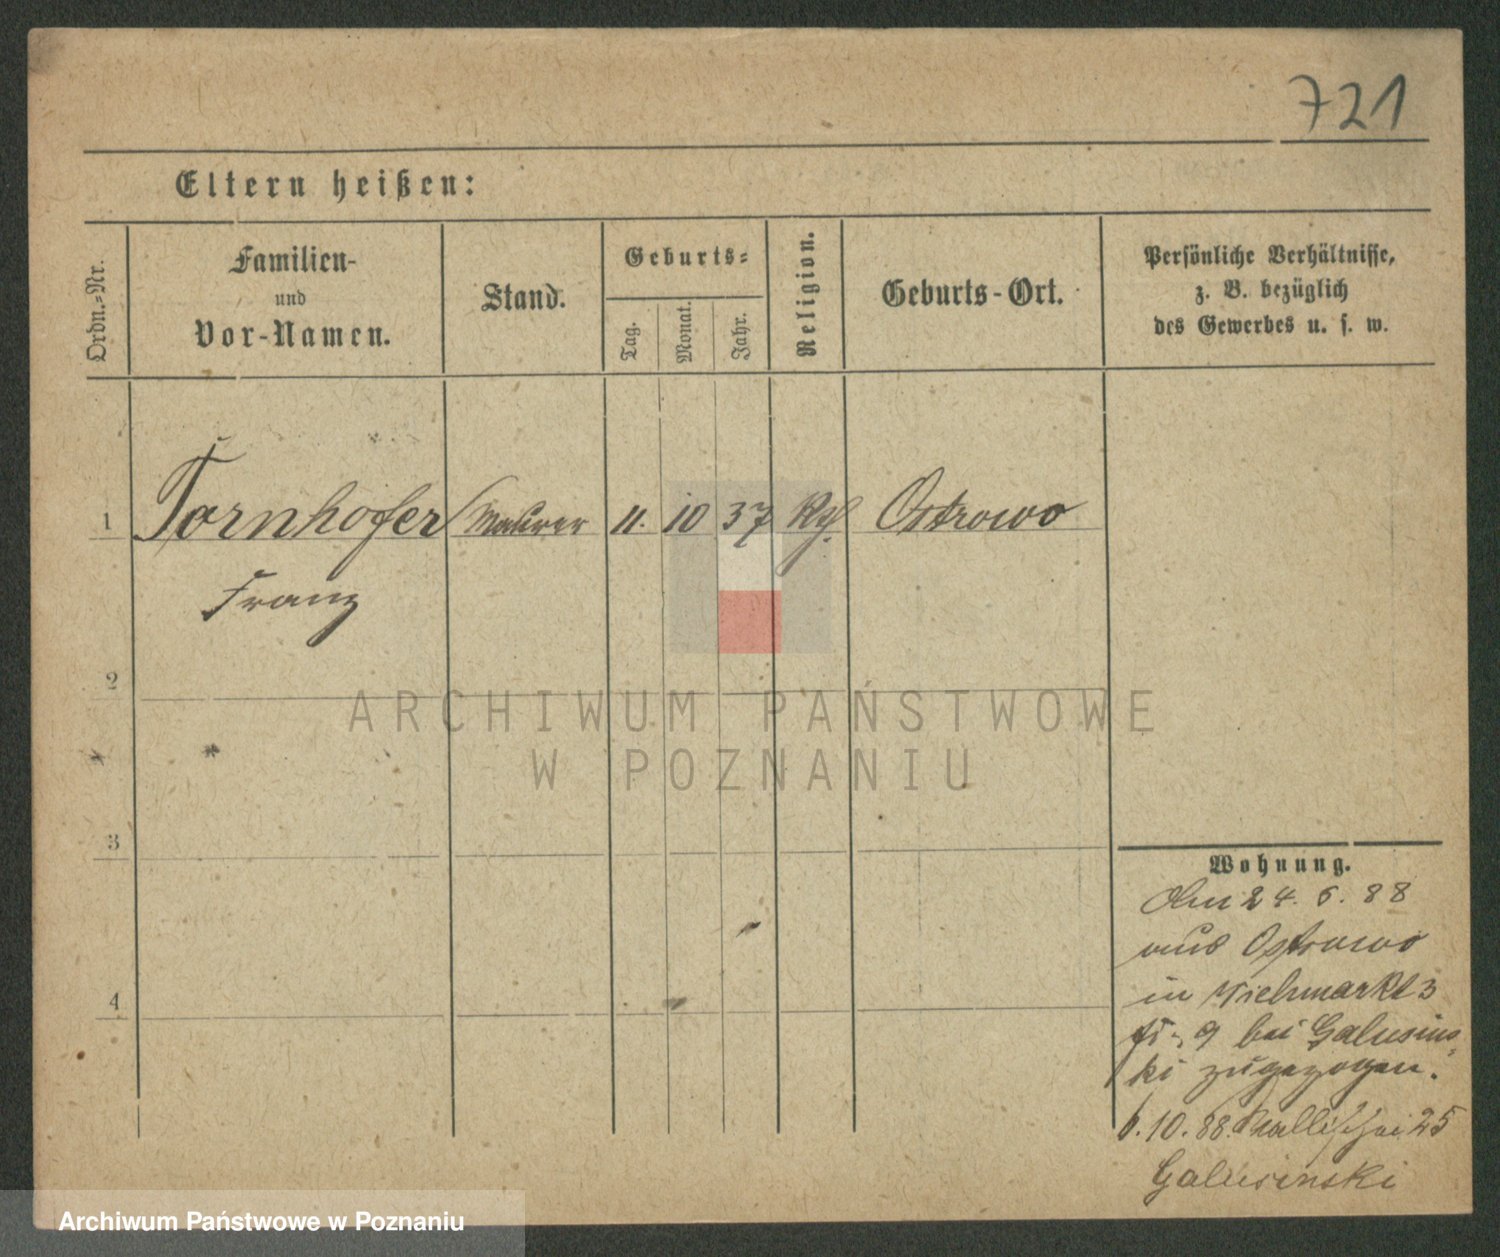 721
Eltern heißen:
Ordn.-Nr.
Familien-
und
Vor-Namen.
Stand.
Geburts-
Tag.
Monat.
Jahr.
Religion.
Geburts-Ort.
Persönliche Verhältnisse,
z. B. bezüglich
des Gewerbes u. s. w.
1 Tornhofer Maurer 11. 10 37 Kth. Ostrowo
Franz
2
ARCHIWUM PAŃSTWOWE
W POZNANIU
3
4
Wohnung.
Am 24. 6. 88
aus Ostrowo
in Viehmarkt 3
9 bei Galusins-
ki zugezogen.
6.10.88. 25
Galusinski
Archiwum Państwowe w Poznaniu